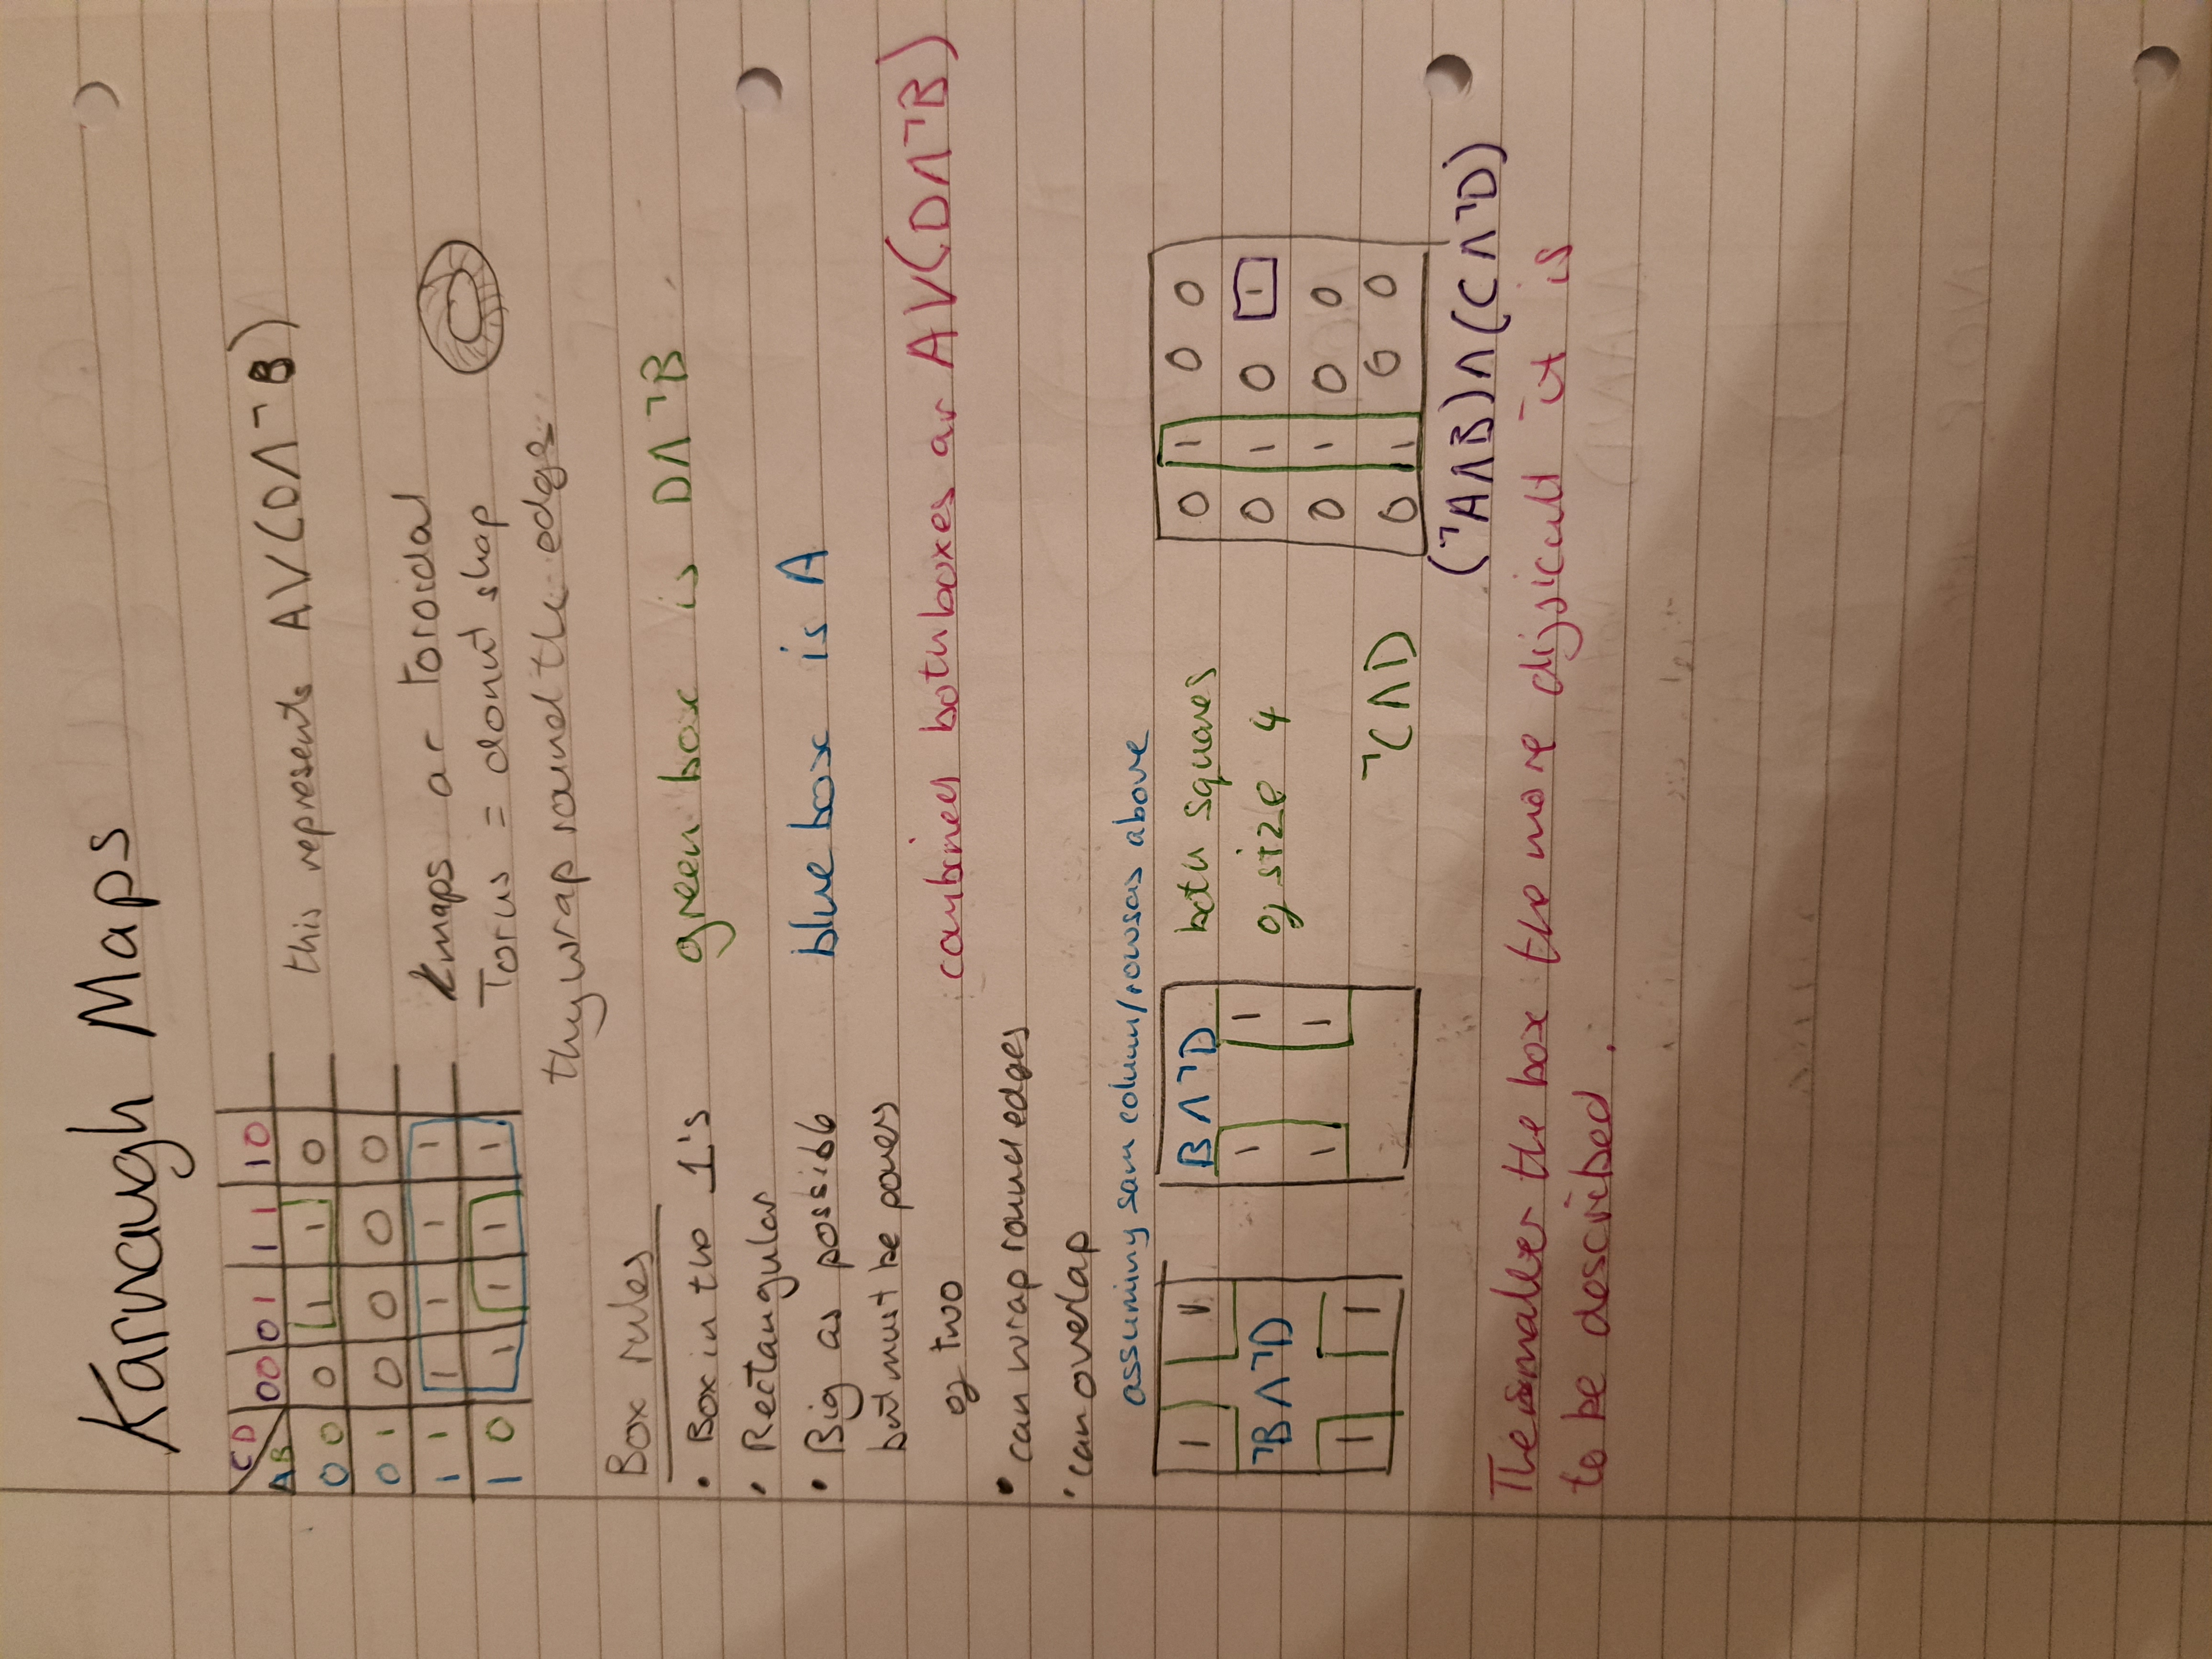 Karnaugh Maps
CD
AB 00 01 11 10
00 0 1 1 0
01 0 0 0 0
11 1 1 1 1
10 1 1 1 1
this represents A∨(D∧¬B)
Kmaps ar toroidal
Torus = donut shap
thy wrap round the edge
Box rules
• Box in the 1's
• Rectangular
• Big as possible
but must be powers
of two
• can wrap round edges
• can overlap
green box is D∧¬B
blue box is A
combined both boxes ar A∨(D∧¬B)
assuming sam column/rows as above
1 1
¬B∧¬D
1 1
B∧¬D
1 1
1 1
both squares
of size 4
¬C∧D
0 1 0 0
0 1 0 1
0 1 0 0
0 1 0 0
(¬A∧B)∧(C∧¬D)
The smaller the box the more difficult it is
to be described.